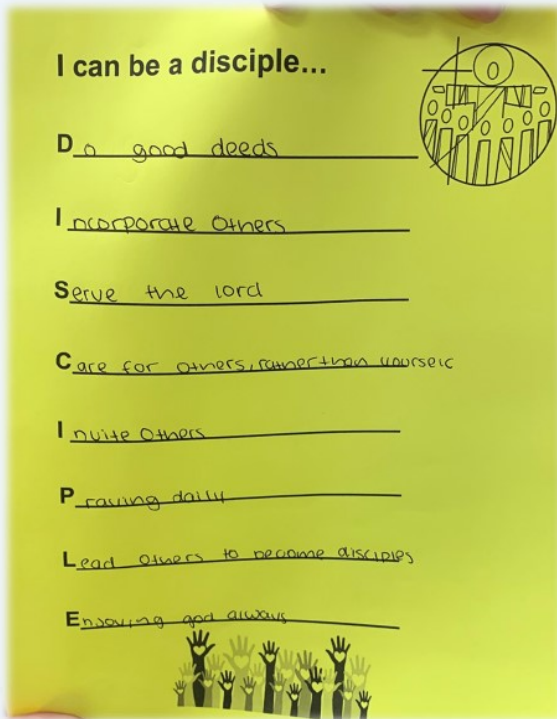 I can be a disciple...
Do good deeds
Incorporate Others
Serve the lord
Care for others, rather than yourself
Invite Others
Praying daily
Lead others to become disciples
Enjoying god always